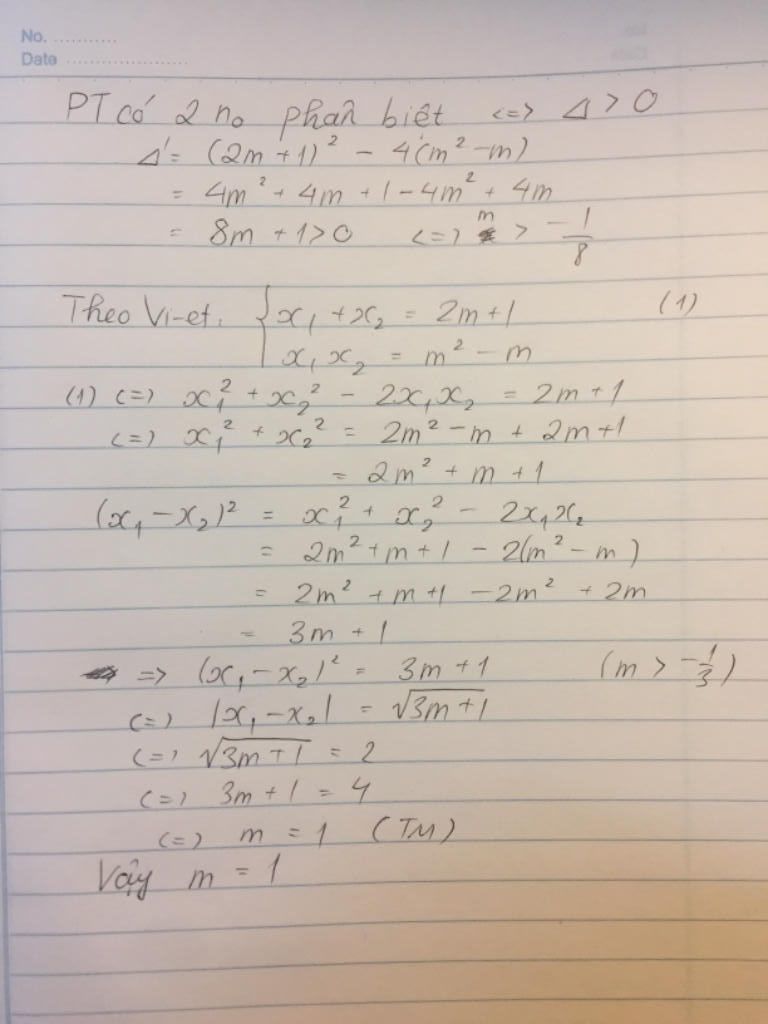 No. ...........
Date .....................
PT có 2 no phân biệt <=> Δ > 0
Δ' = (2m + 1)² - 4(m² - m)
= 4m² + 4m + 1 - 4m² + 4m
= 8m + 1 > 0 <=> m > -1/8
Theo Vi-et. { x₁ + x₂ = 2m + 1 (1)
x₁x₂ = m² - m
(1) <=> x₁² + x₂² - 2x₁x₂ = 2m + 1
<=> x₁² + x₂² = 2m² - m + 2m + 1
= 2m² + m + 1
(x₁ - x₂)² = x₁² + x₂² - 2x₁x₂
= 2m² + m + 1 - 2(m² - m)
= 2m² + m + 1 - 2m² + 2m
= 3m + 1
=> (x₁ - x₂)² = 3m + 1 (m > -1/3)
<=> |x₁ - x₂| = √(3m + 1)
<=> √(3m + 1) = 2
<=> 3m + 1 = 4
<=> m = 1 (TM)
Vậy m = 1